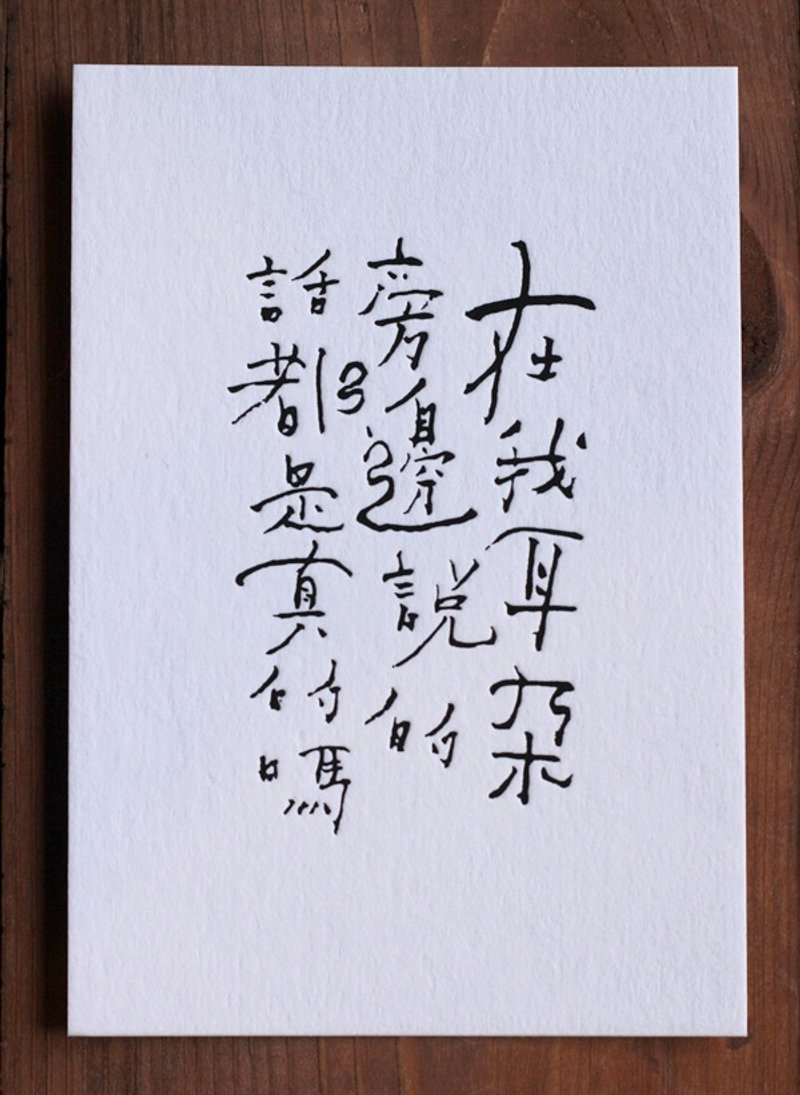 在我耳朵
旁邊説的
話都是真的嗎